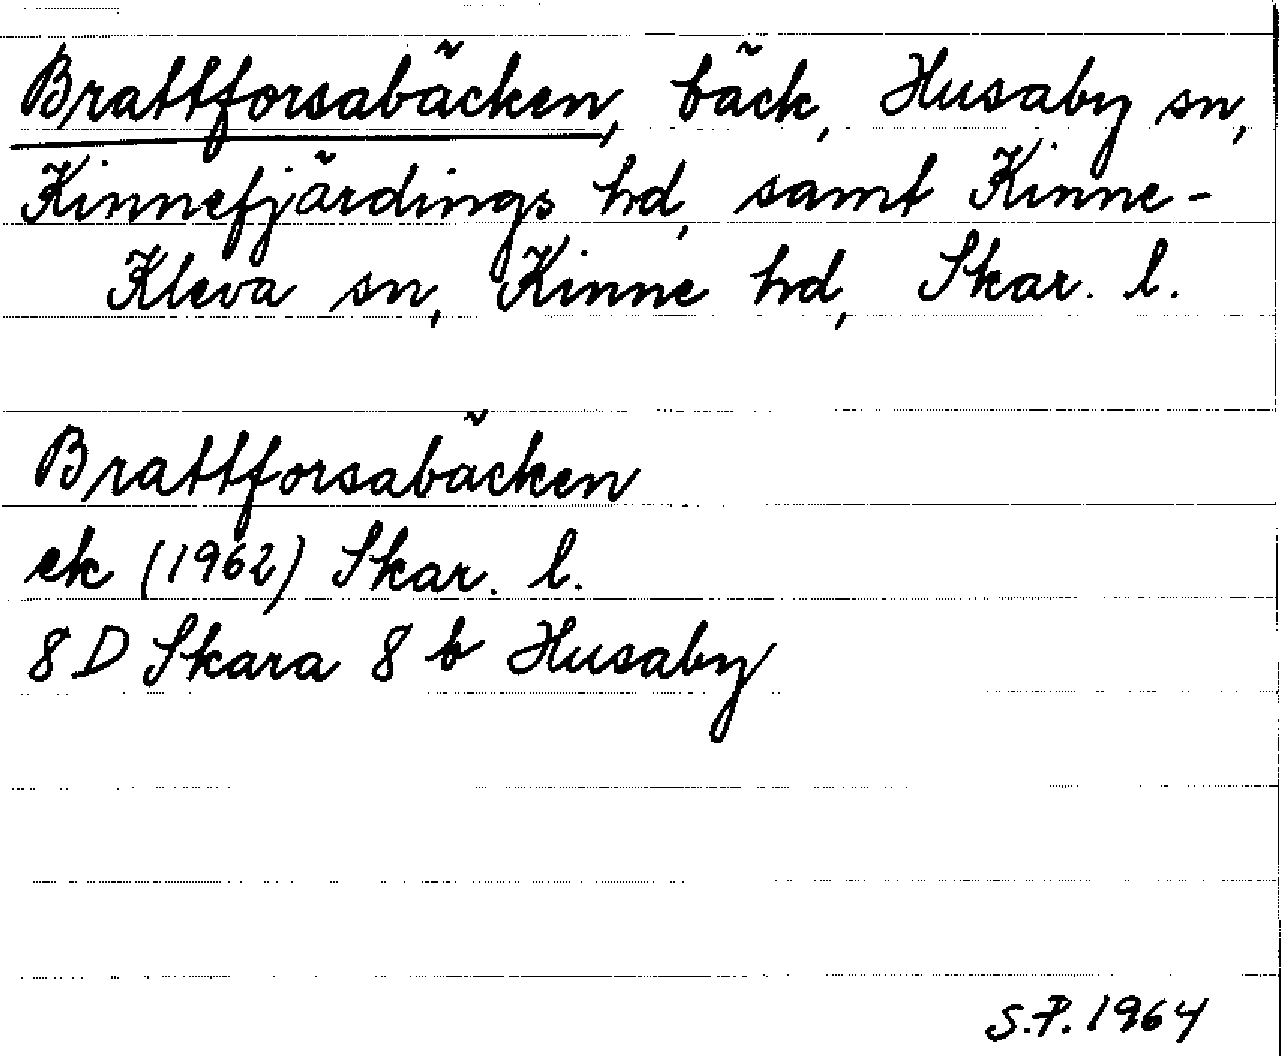 Brattforsabäcken, bäck, Husaby sn,
Kinnefjärdings hd, samt Kinne-
Kleva sn, Kinne hd, Skar. l.
Brattforsabäcken
ek (1962) Skar. l.
8 D Skara 8 b Husaby
S.P. 1964